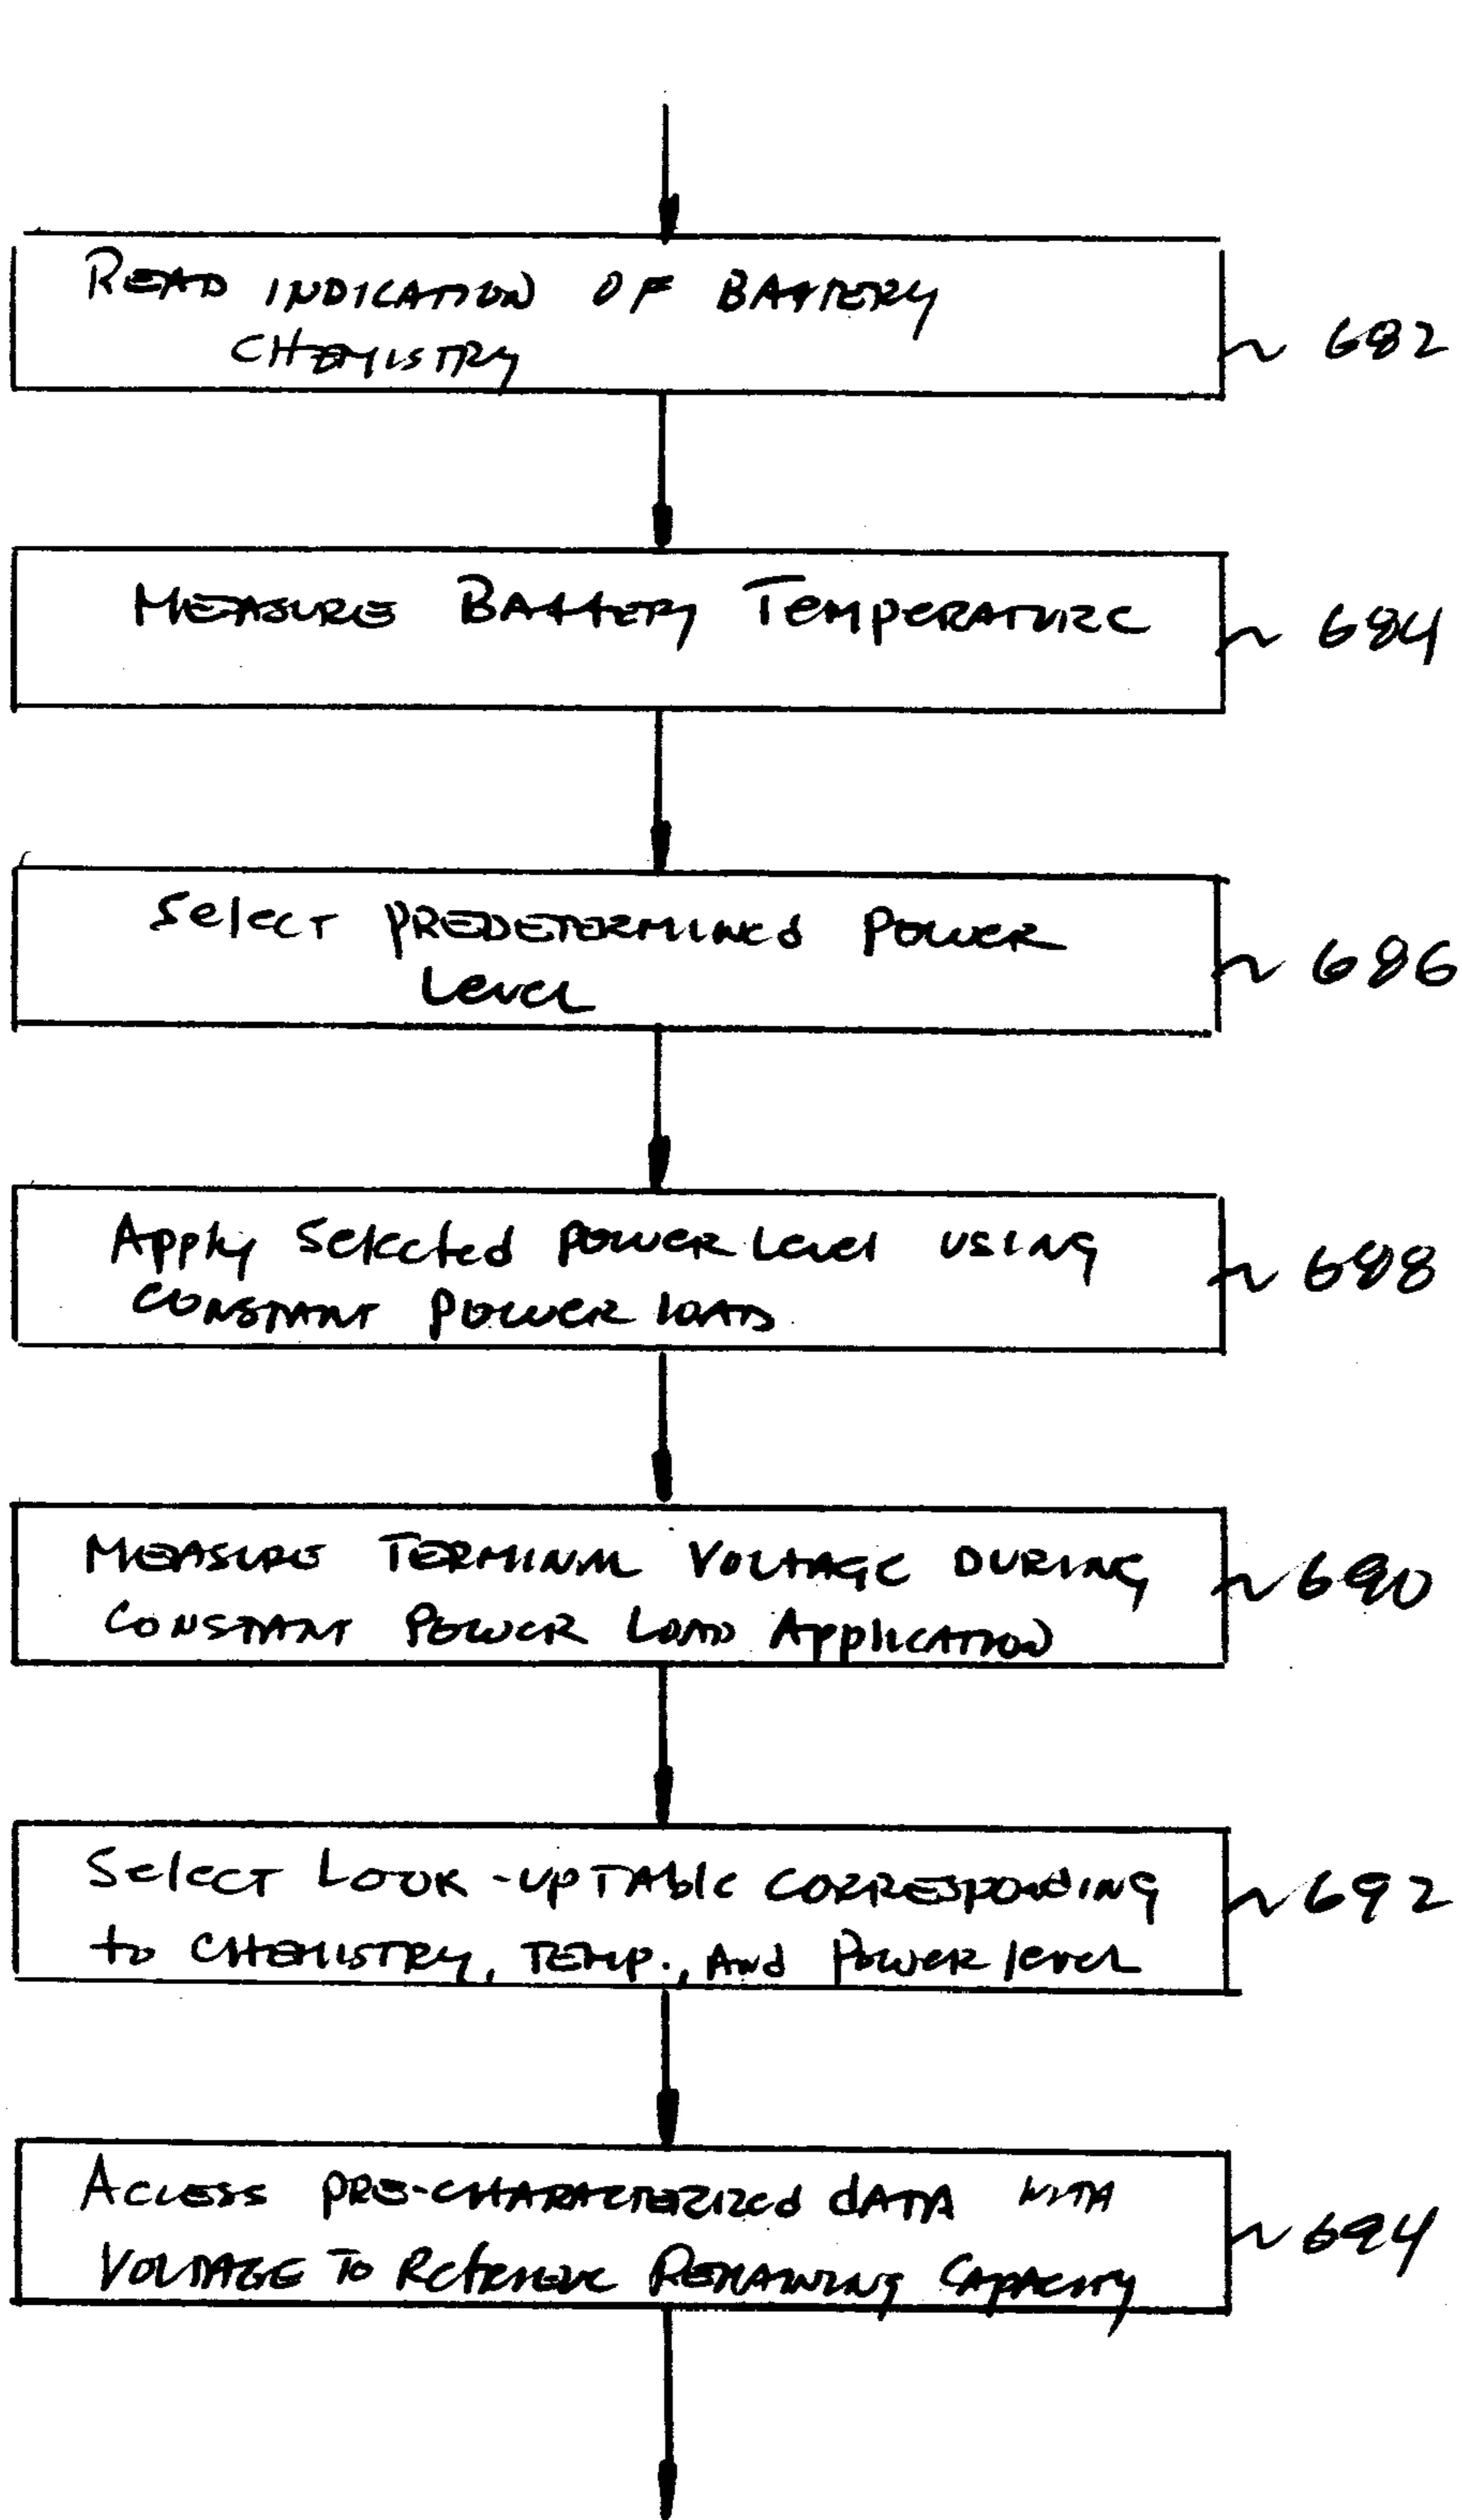 READ INDICATION OF BATTERY
CHEMISTRY
682
MEASURE BATTERY TEMPERATURE
684
Select PREDETERMINED POWER
Level
686
Apply Selected power level USING
CONSTANT POWER LOAD
688
MEASURE TERMINAL VOLTAGE DURING
CONSTANT POWER LOAD APPLICATION
690
Select LOOK-UP TABLE CORRESPONDING
to CHEMISTRY, TEMP., And Power level
692
ACCESS PRE-CHARACTERIZED DATA WITH
VOLTAGE TO RETRIEVE REMAINING CAPACITY
694